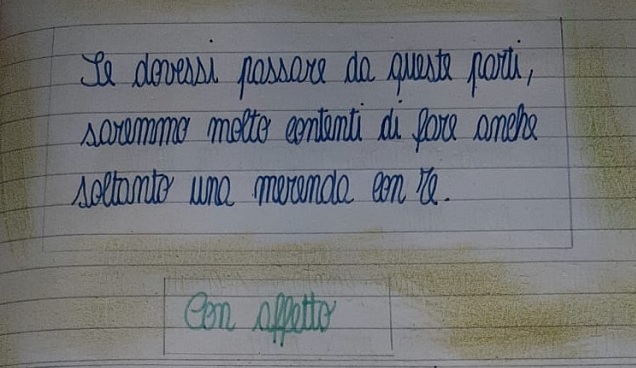 Se dovessi passare da queste parti,
saremmo molto contenti di fare anche
soltanto una merenda con Te.
Con affetto